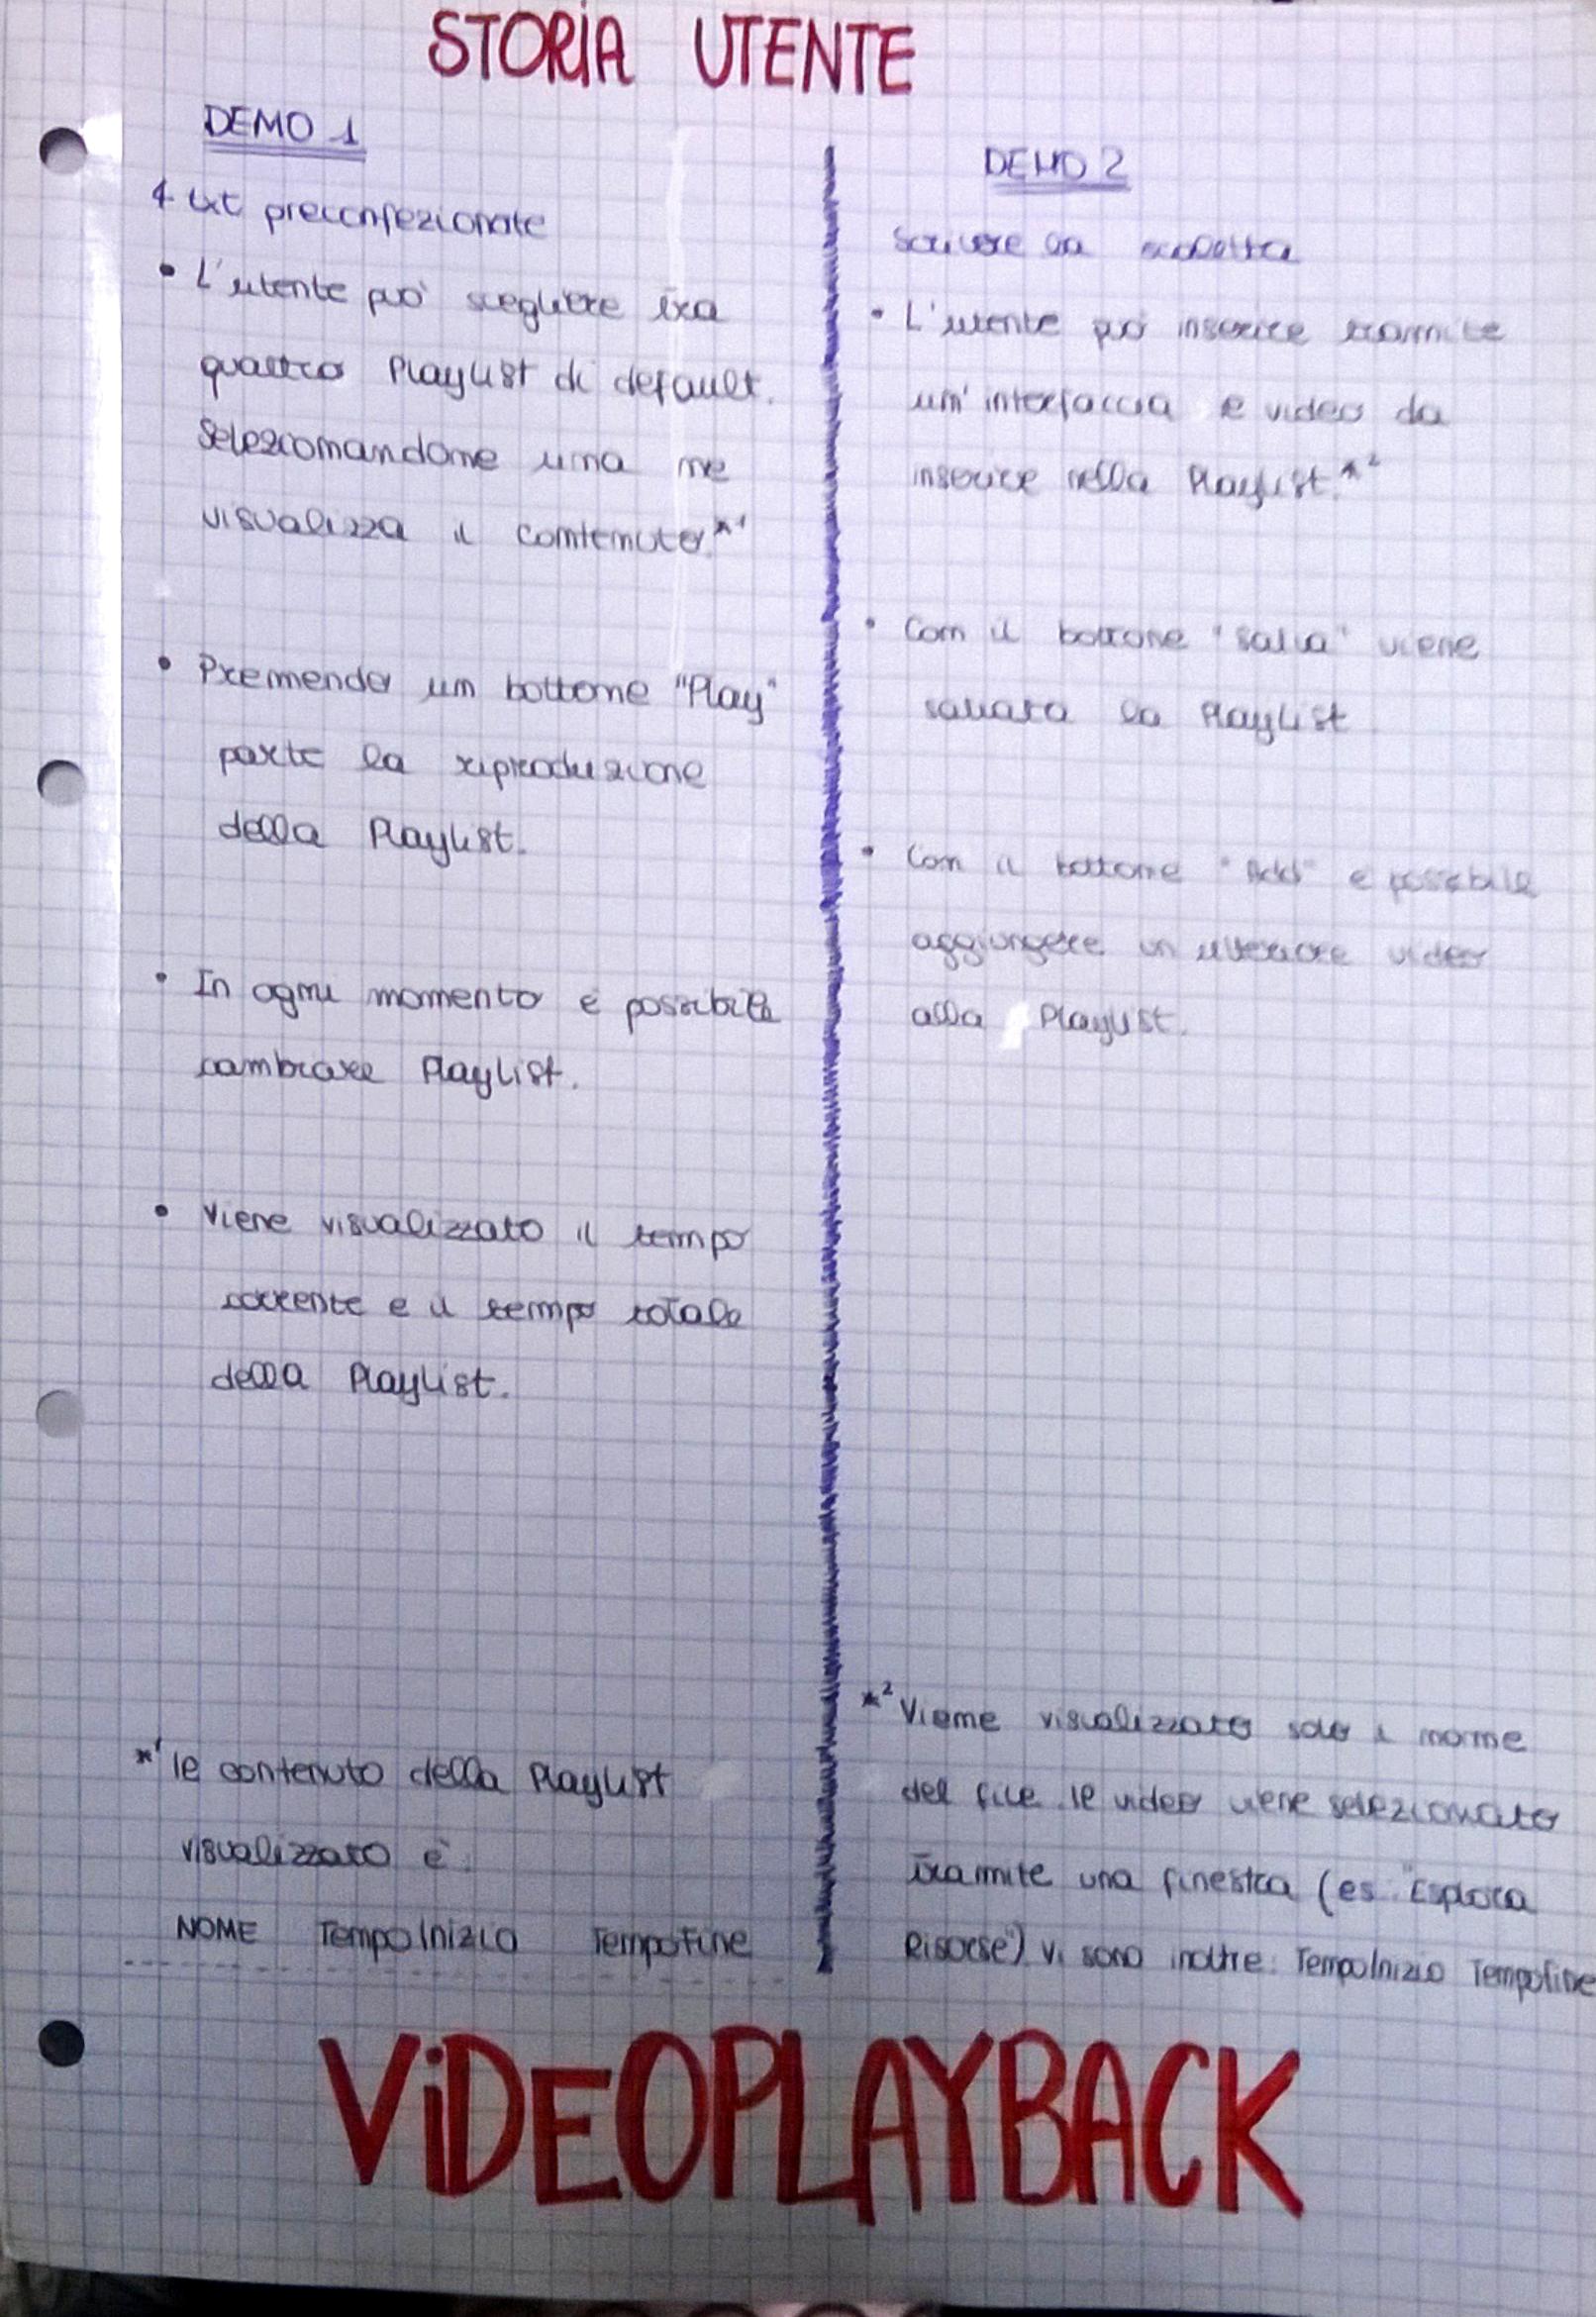 STORIA UTENTE
DEMO 1
4 txt preconfezionate
• L'utente può scegliere tra
quattro Playlist di default.
Selezionandone una ne
visualizza il contenuto.*¹
• Premendo un bottone "Play"
parte la riproduzione
della Playlist.
• In ogni momento è possibile
cambiare Playlist.
• Viene visualizzato il tempo
corrente e il tempo totale
della Playlist.
*¹ Il contenuto della Playlist
visualizzato è:
NOME TempoInizio TempoFine
DEMO 2
scrivere la scaletta
• L'utente può inserire tramite
un'interfaccia i video da
inserire nella Playlist.*²
• Con il bottone "salva" viene
salvata la Playlist
• Con il bottone "Add" è possibile
aggiungere un ulteriore video
alla Playlist.
*² Viene visualizzato solo il nome
del file. Il video viene selezionato
tramite una finestra (es. "Esplora
Risorse"). Vi sono inoltre: TempoInizio TempoFine
VIDEOPLAYBACK